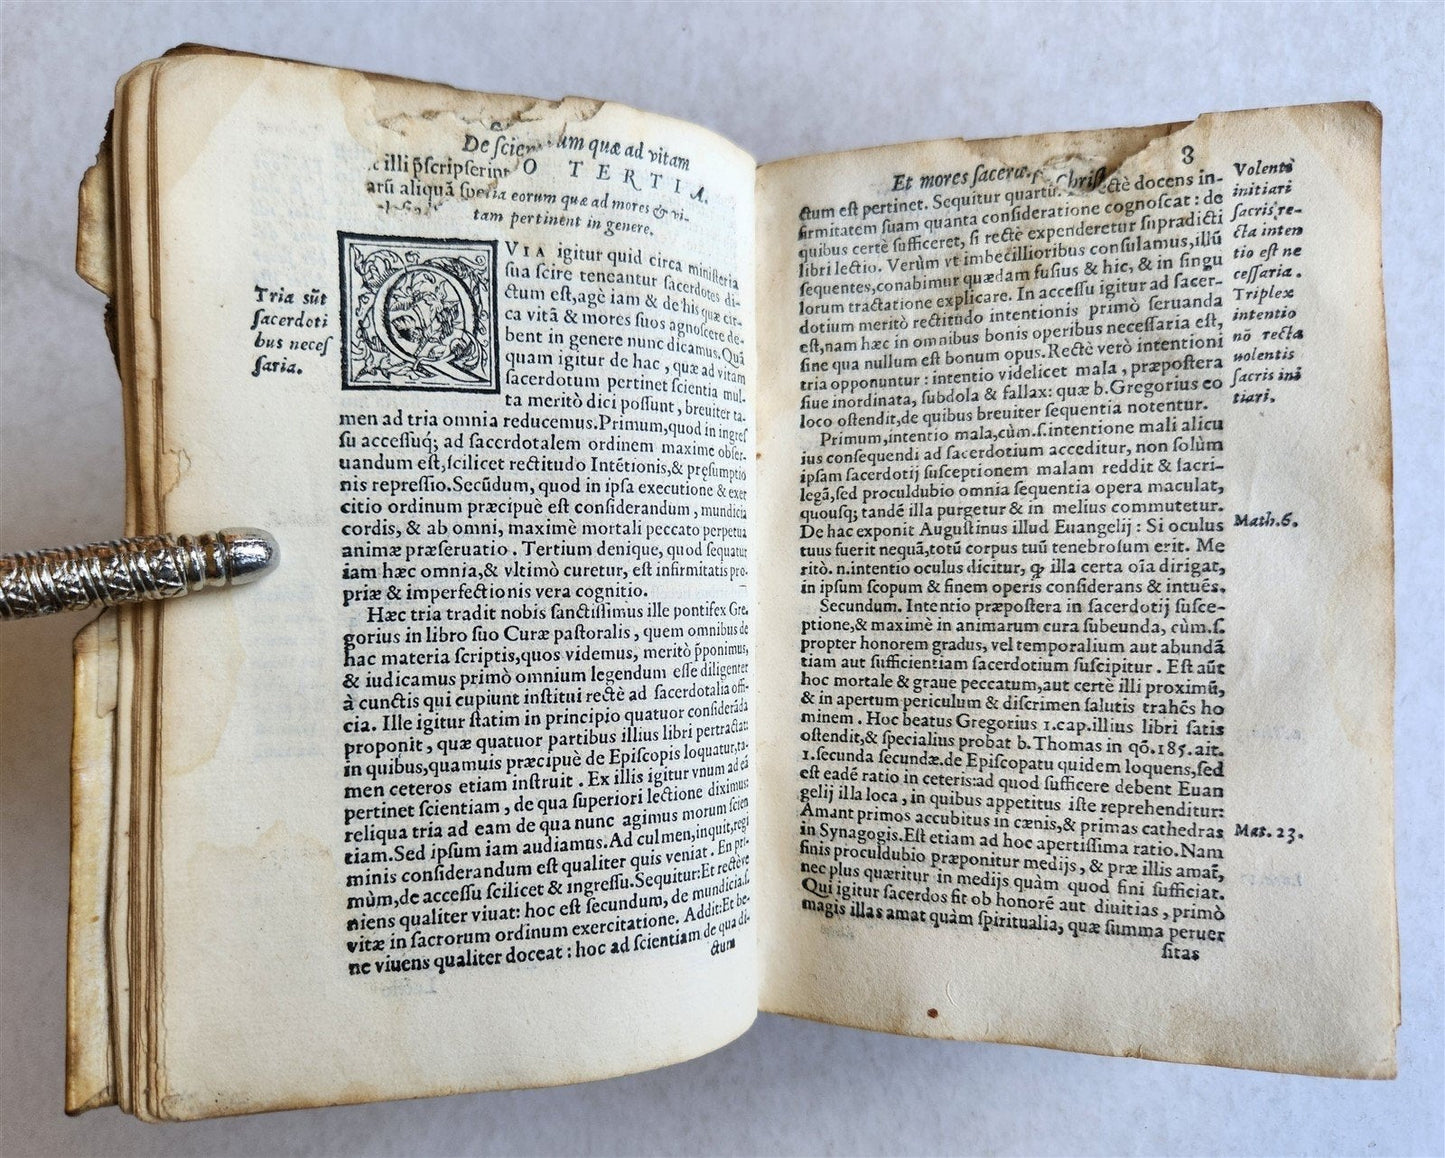 De scien um quæ ad vitam
illi p̄scripserint O TERTIA.
arū aliquā species eorum quæ ad mores & vi-
tam pertinent in genere.
Tria sūt
sacerdoti
bus neces
saria.
QVIA igitur quid circa ministeria
sua scire teneantur sacerdotes di-
ctum est, agè iam & de his quæ cir-
ca vitā & mores suos agnoscere de-
bent in genere nunc dicamus. Quā
quam igitur de hac, quæ ad vitam
sacerdotum pertinet scientia mul-
ta meritò dici possunt, breuiter ta-
men ad tria omnia reducemus. Primum, quod in ingres
su accessuq; ad sacerdotalem ordinem maxime obser-
uandum est, scilicet rectitudo Intētionis, & pręsumptio
nis repressio. Secūdum, quod in ipsa executione & exer
citio ordinum præcipuè est considerandum, mundicia
cordis, & ab omni, maximè mortali peccato perpetua
animæ præseruatio. Tertium denique, quod sequatur
iam hæc omnia, & vltimò curetur, est infirmitatis pro-
priæ & imperfectionis vera cognitio.
Hæc tria tradit nobis sanctissimus ille pontifex Gre.
gorius in libro suo Curæ pastoralis, quem omnibus de
hac materia scriptis, quos videmus, meritò p̄ponimus,
& iudicamus primò omnium legendum esse diligenter
à cunctis qui cupiunt institui rectè ad sacerdotalia offi-
cia. Ille igitur statim in principio quatuor considerāda
proponit, quæ quatuor partibus illius libri pertractat:
in quibus, quamuis præcipuè de Episcopis loquatur, ta-
men ceteros etiam instruit. Ex illis igitur vnum ad eā
pertinet scientiam, de qua superiori lectione diximus:
reliqua tria ad eam de qua nunc agimus morum scien
tiam. Sed ipsum iam audiamus. Ad culmen, inquit, regi
minis considerandum est qualiter quis veniat. En pri-
mùm, de accessu scilicet & ingressu. Sequitur: Et rectè ve
niens qualiter viuat: hoc est secundum, de mundicia.s.
vitæ in sacrorum ordinum exercitatione. Addit: Et be-
ne viuens qualiter doceat: hoc ad scientiam de qua di-
ctum
Et mores sacerd. Christ 3
ctum est pertinet. Sequitur quartū. rectè docens in-
firmitatem suam quanta consideratione cognoscat: de
quibus certè sufficeret, si rectè expenderetur supradicti
libri lectio. Verùm vt imbecillioribus consulamus, illū
sequentes, conabimur quædam fusius & hic, & in singu
lorum tractatione explicare. In accessu igitur ad sacer-
dotium meritò rectitudo intentionis primò seruanda
est, nam hæc in omnibus bonis operibus necessaria est,
sine qua nullum est bonum opus. Rectè verò intentioni
tria opponuntur: intentio videlicet mala, præpostera
siue inordinata, subdola & fallax: quæ b. Gregorius eo
loco ostendit, de quibus breuiter sequentia notentur.
Primum, intentio mala, cùm.s. intentione mali alicu
ius consequendi ad sacerdotium acceditur, non solùm
ipsam sacerdotij susceptionem malam reddit & sacri-
legā, sed proculdubio omnia sequentia opera maculat,
quousq; tandē illa purgetur & in melius commutetur.
De hac exponit Augustinus illud Euangelij: Si oculus
tuus fuerit nequā, totū corpus tuū tenebrosum erit. Me
ritò. n. intentio oculus dicitur, ꝙ illa certa oīa dirigat,
in ipsum scopum & finem operis considerans & intuēs.
Secundum. Intentio præpostera in sacerdotij susce-
ptione, & maximè in animarum cura subeunda, cùm.s.
propter honorem gradus, vel temporalium aut abundā
tiam aut sufficientiam sacerdotium suscipitur. Est aūt
hoc mortale & graue peccatum, aut certè illi proximū,
& in apertum periculum & discrimen salutis trahēs ho
minem. Hoc beatus Gregorius 1. cap. illius libri satis
ostendit, & specialius probat b. Thomas in qō. 185. ait.
1. secunda secundæ. de Episcopatu quidem loquens, sed
est eadē ratio in ceteris: ad quod sufficere debent Euan
gelij illa loca, in quibus appetitus iste reprehenditur:
Amant primos accubitus in cænis, & primas cathedras
in Synagogis. Est etiam ad hoc apertissima ratio. Nam
finis proculdubio præponitur medijs, & præ illis amat̄,
nec plus quæritur in medijs quàm quod fini sufficiat.
Qui igitur sacerdos fit ob honorē aut diuitias, primò
magis illas amat quàm spiritualia, quæ summa peruer
sitas
Volentē
initiari
sacris re-
cta inten
tio est ne
cessaria.
Triplex
intentio
nō recta
uolentis
sacris ini
tiari.
Math. 6.
Mat. 23.